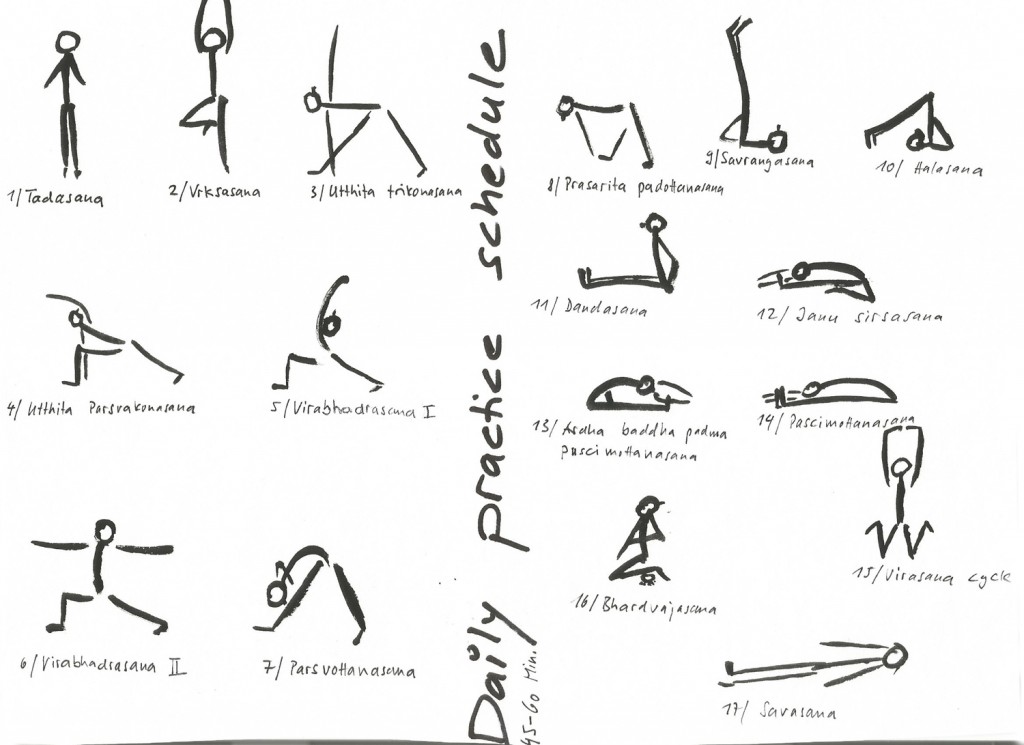 1/ Tadasana
2/ Vrksasana
3/ Utthita trikonasana
4/ Utthita Parsvakonasana
5/ Virabhadrasana I
6/ Virabhadrasana II
7/ Parsvottanasana
Daily practice schedule
45-60 Min.
8/ Prasarita padottanasana
9/ Savrangasana
10/ Halasana
11/ Dandasana
12/ Janu sirsasana
13/ Ardha baddha padma
pascimottanasana
14/ Pascimottanasana
15/ Virasana cycle
16/ Bhardvajasana
17/ Savasana